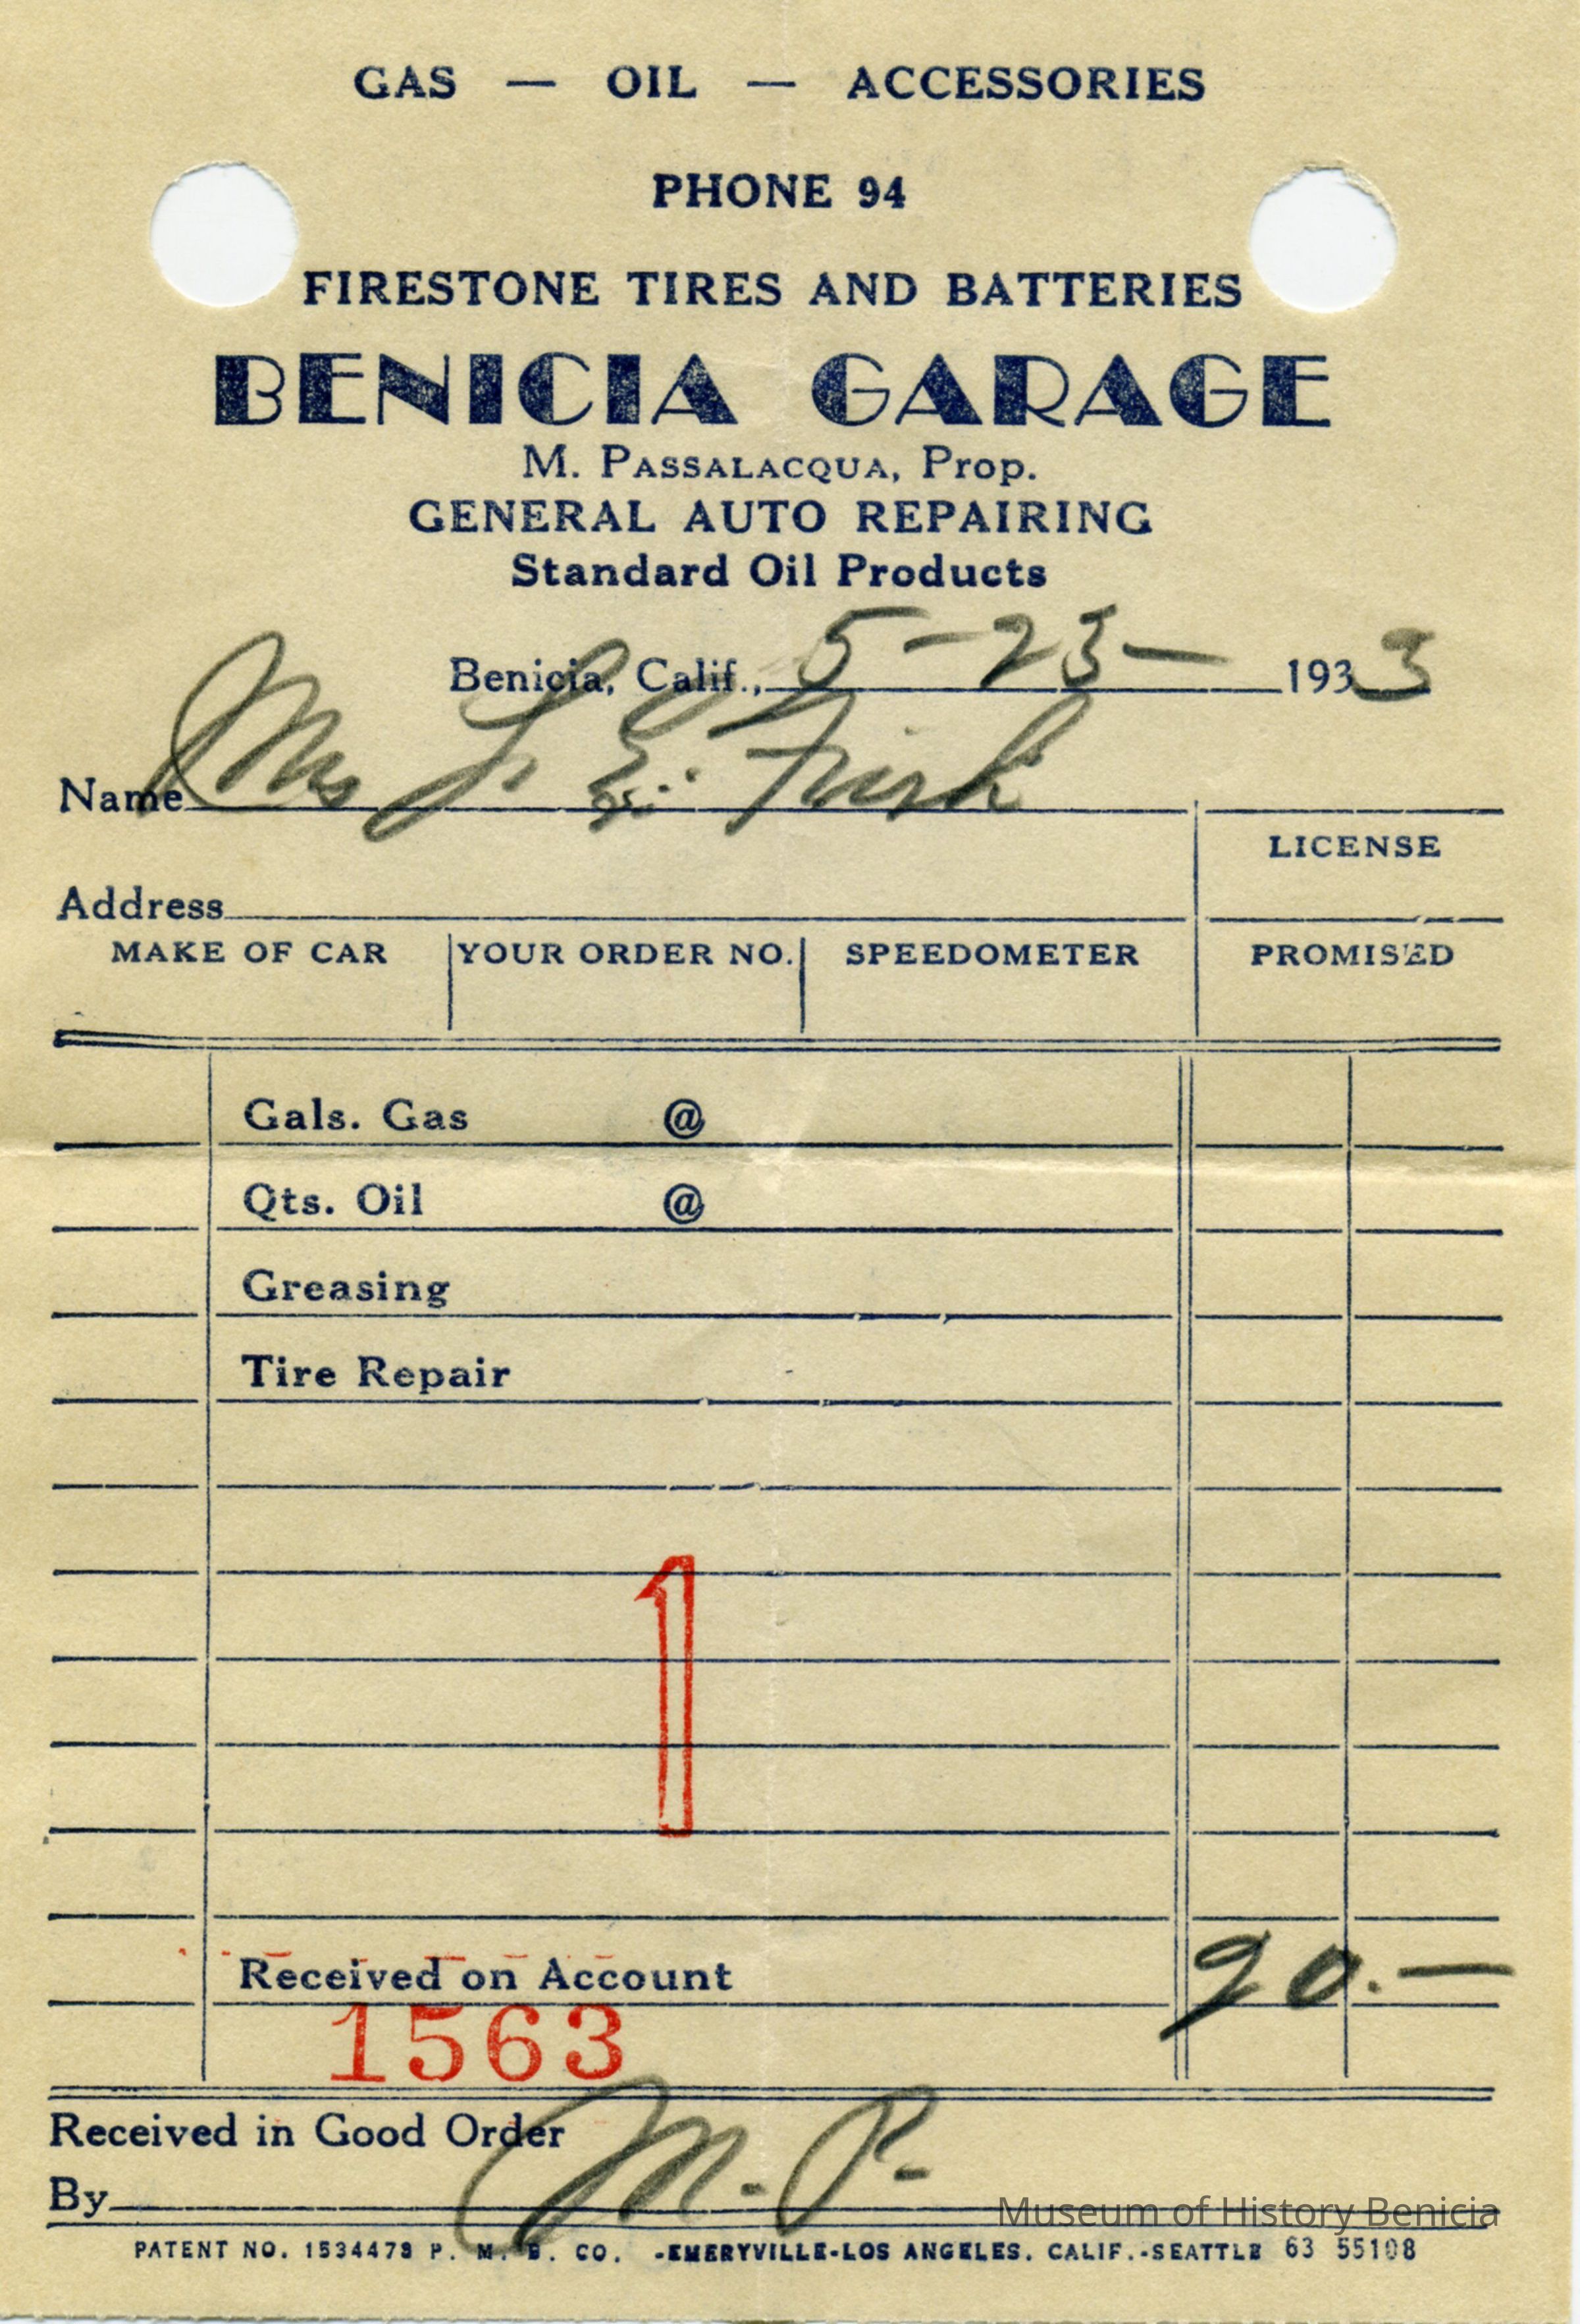 GAS — OIL — ACCESSORIES
PHONE 94
FIRESTONE TIRES AND BATTERIES
BENICIA GARAGE
M. PASSALACQUA, Prop.
GENERAL AUTO REPAIRING
Standard Oil Products
Benicia, Calif., 5-23- 1933
Name Mrs
LICENSE
Address
MAKE OF CAR YOUR ORDER NO. SPEEDOMETER PROMISED
Gals. Gas @
Qts. Oil @
Greasing
Tire Repair
1
Received on Account 20.—
1563
Received in Good Order
By M. P.
Museum of History Benicia
PATENT NO. 1534478 P. M. B. CO. -EMERYVILLE-LOS ANGELES. CALIF.-SEATTLE 63 55108